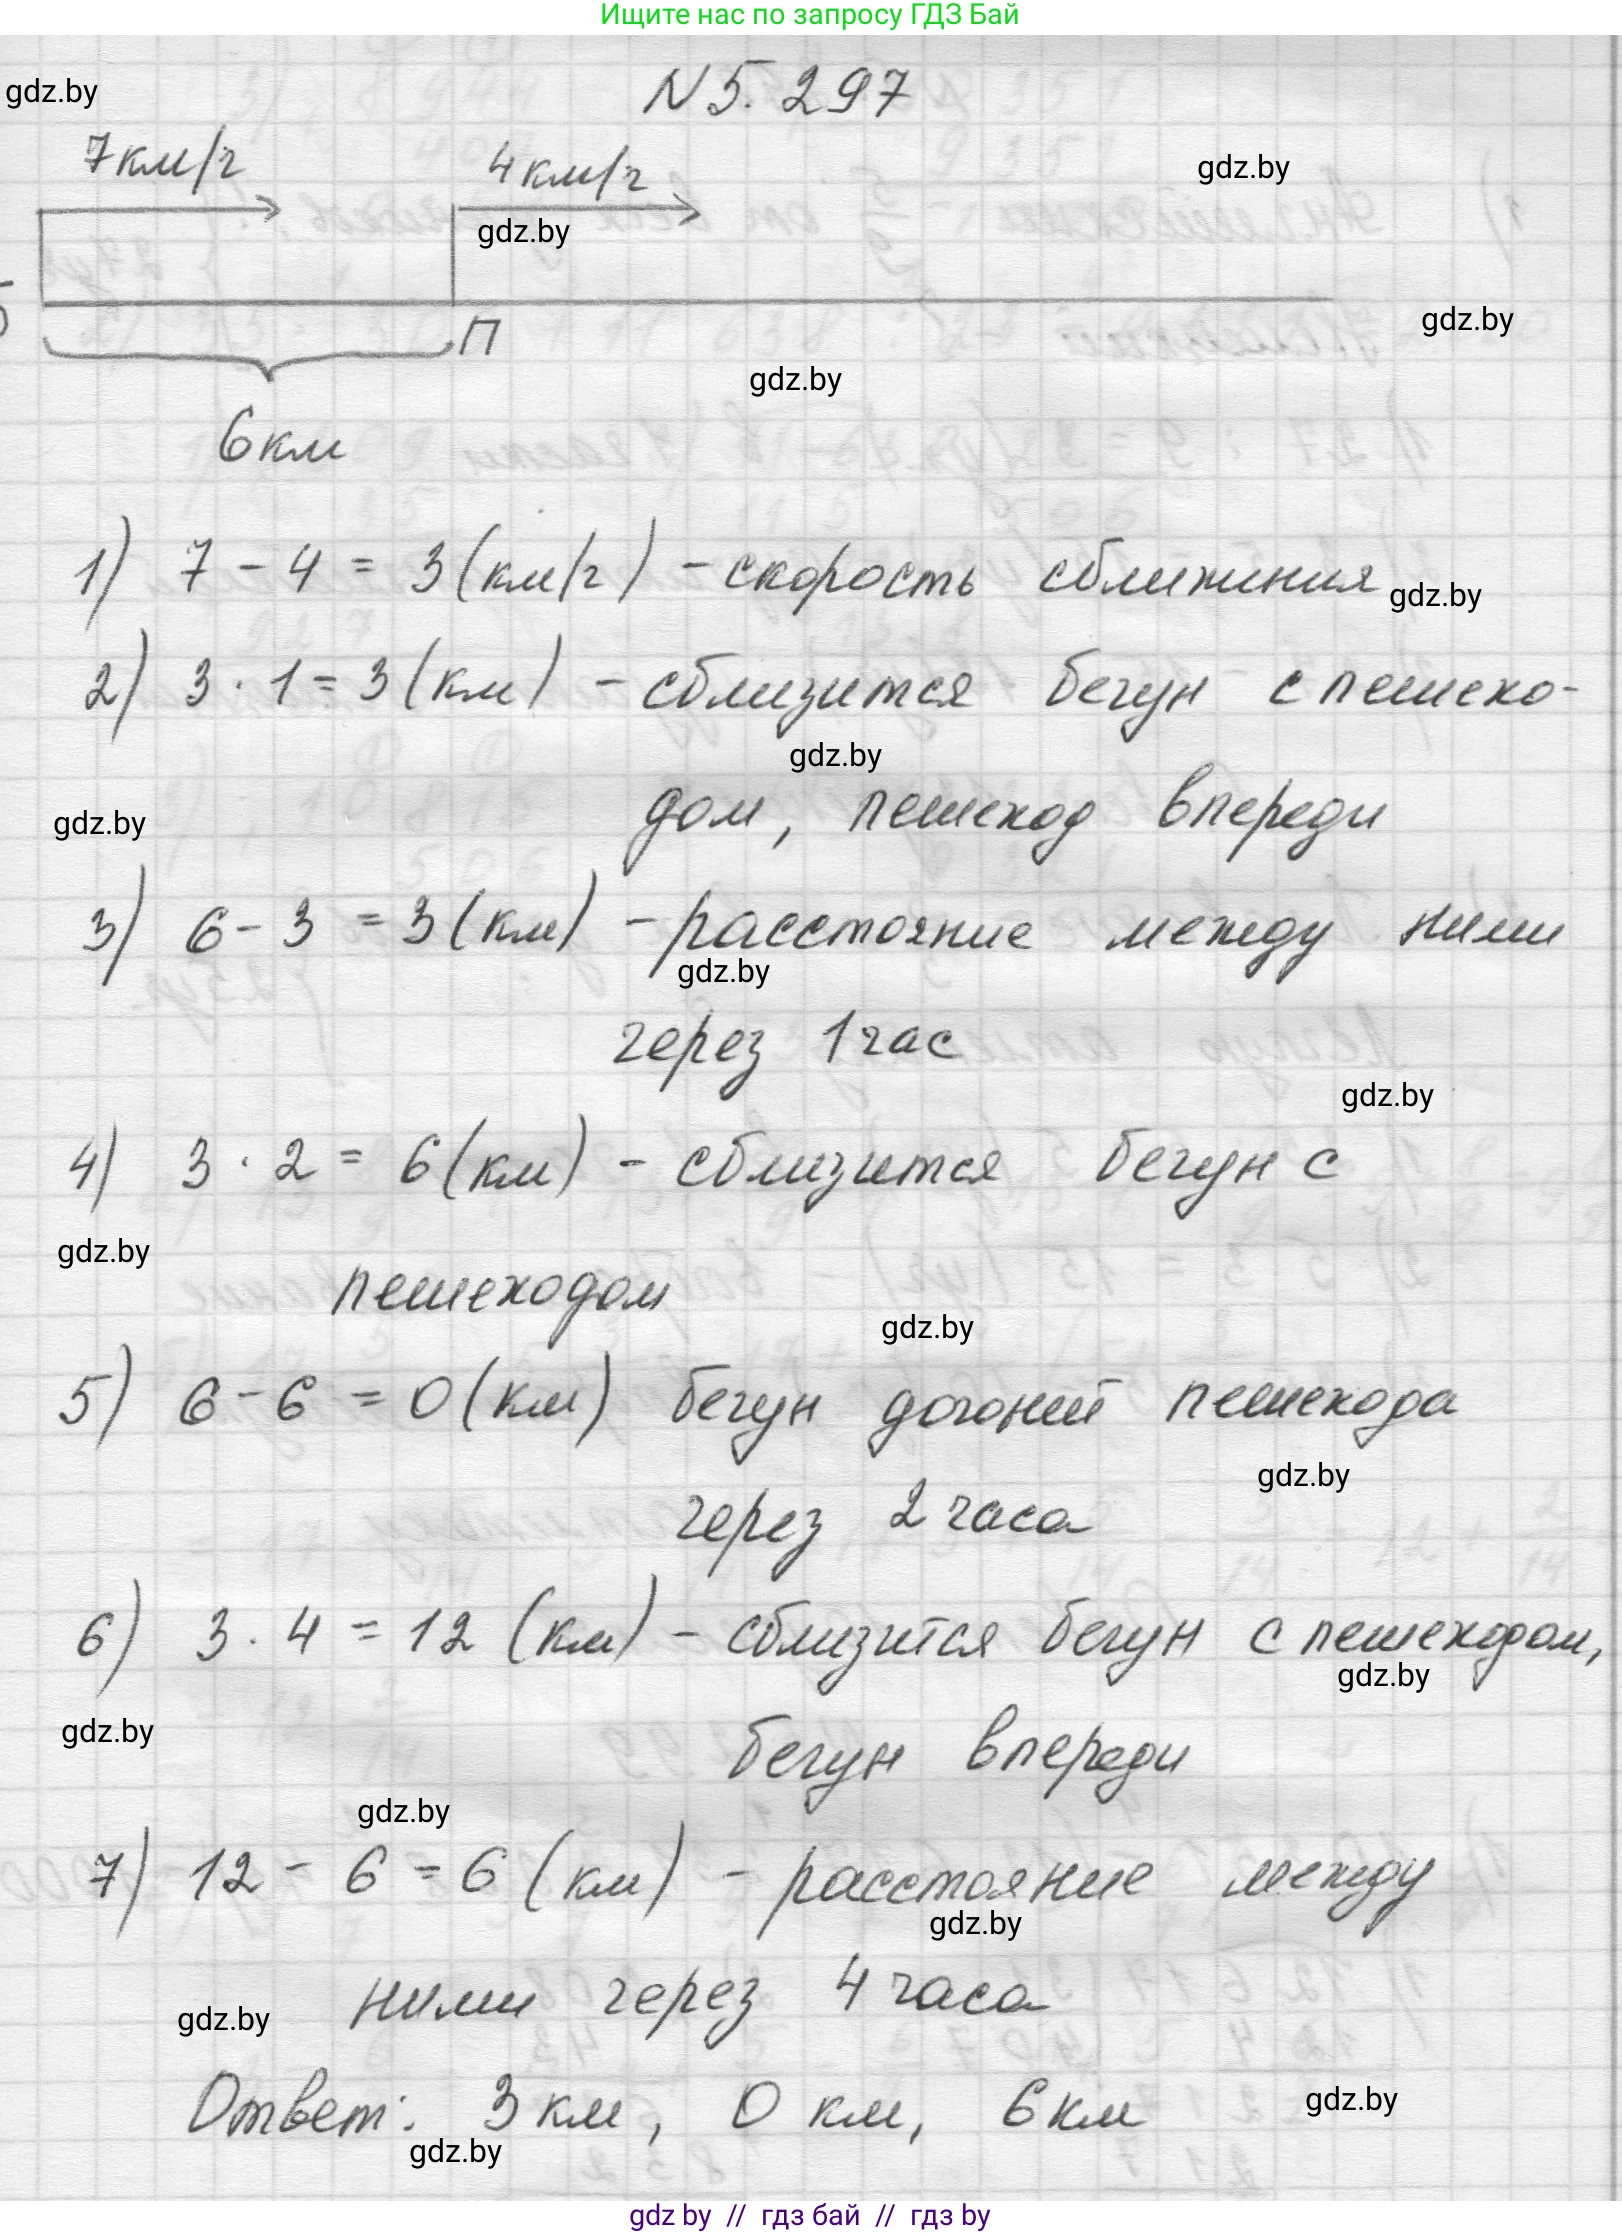 Ищите нас по запросу ГДЗ Бай
N 5.297
gdz.by
7км/ч
4км/ч
gdz.by
gdz.by
Б
П
gdz.by
gdz.by
6км
1) 7 - 4 = 3 (км/ч) - скорость сближиния
gdz.by
2) 3 · 1 = 3 (км) - сблизится бегун с пешехо-
gdz.by
дом, пешеход впереди
gdz.by
3) 6 - 3 = 3 (км) - расстояние между ними
gdz.by
через 1 час
gdz.by
4) 3 · 2 = 6 (км) - сблизится бегун с
gdz.by
пешеходом
gdz.by
5) 6 - 6 = 0 (км) бегун догонит пешехода
gdz.by
через 2 часа
6) 3 · 4 = 12 (км) - сблизится бегун с пешеходом,
gdz.by
gdz.by
бегун впереди
gdz.by
7) 12 - 6 = 6 (км) - расстояние между
gdz.by
ними через 4 часа
gdz.by
Ответ: 3 км, 0 км, 6 км
gdz.by
gdz.by
gdz by // гдз бай // гдз by